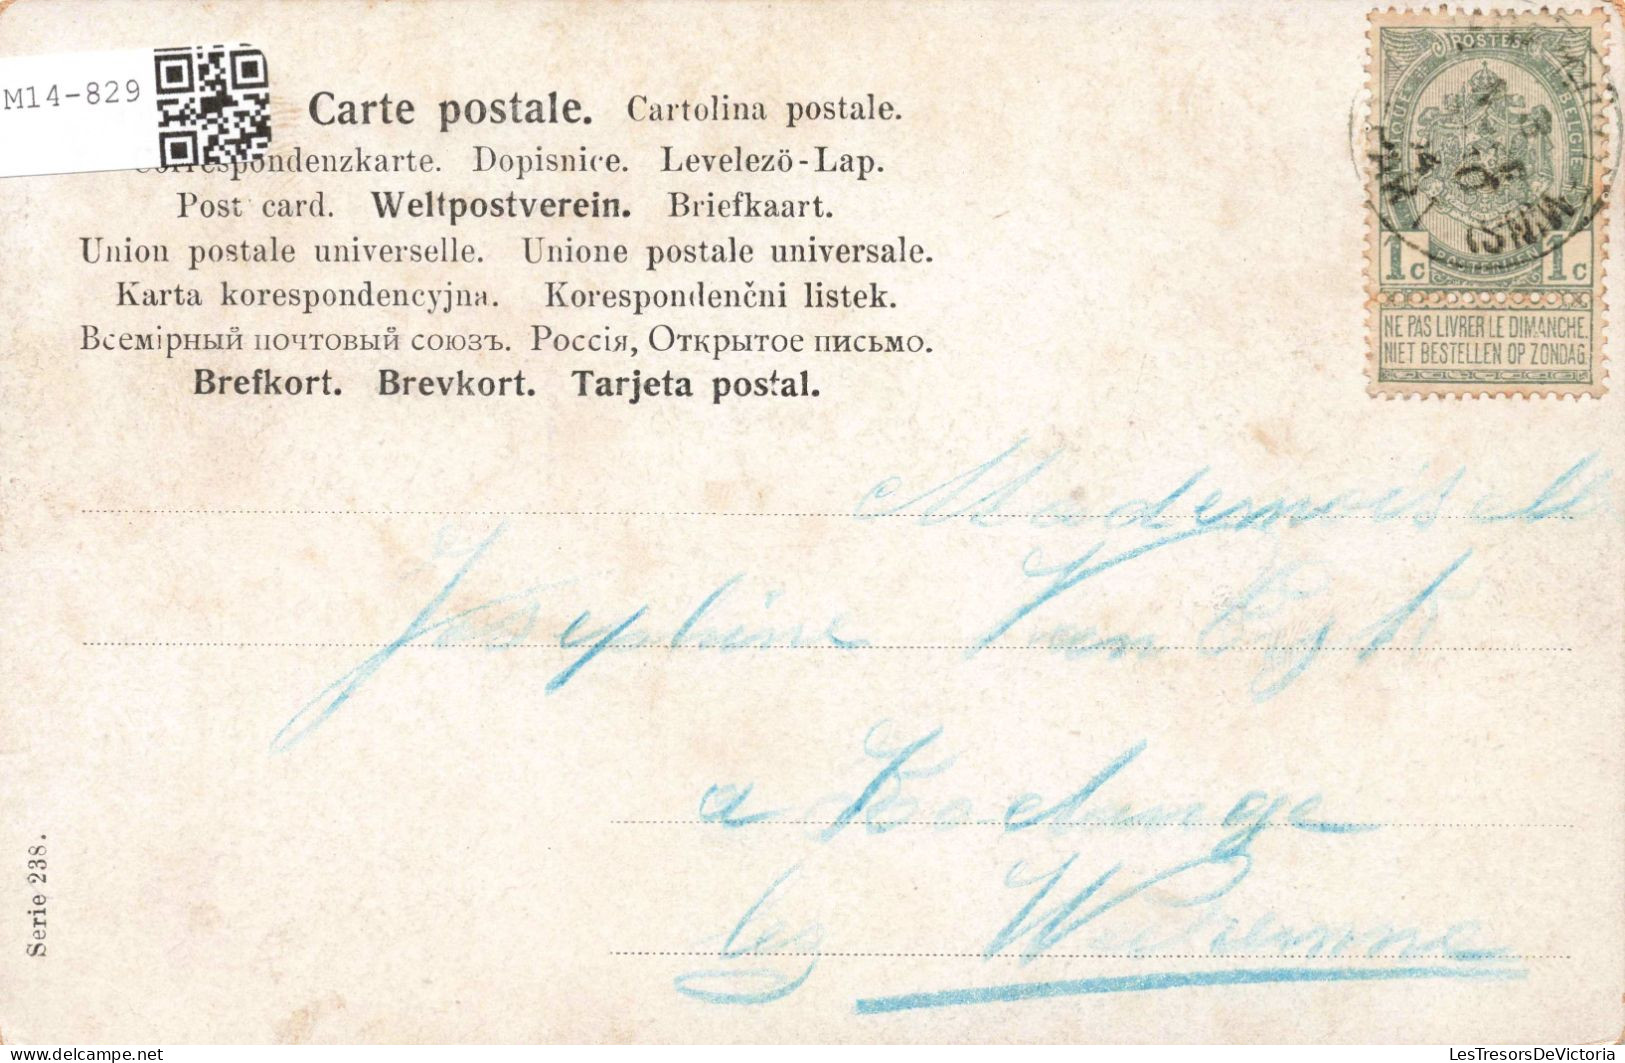 M14-829
Carte postale. Cartolina postale.
Correspondenzkarte. Dopisnice. Levelezö-Lap.
Post card. Weltpostverein. Briefkaart.
Union postale universelle. Unione postale universale.
Karta korespondencyjna. Korespondenčni listek.
Всемірный почтовый союзъ. Россія, Открытое письмо.
Brefkort. Brevkort. Tarjeta postal.
POSTES
BELGIQUE BELGIE
1c 1c
NE PAS LIVRER LE DIMANCHE
NIET BESTELLEN OP ZONDAG
Mademoiselle
Josephine Van Eyk
a
Serie 238.
delcampe.net
LesTresorsDeVictoria